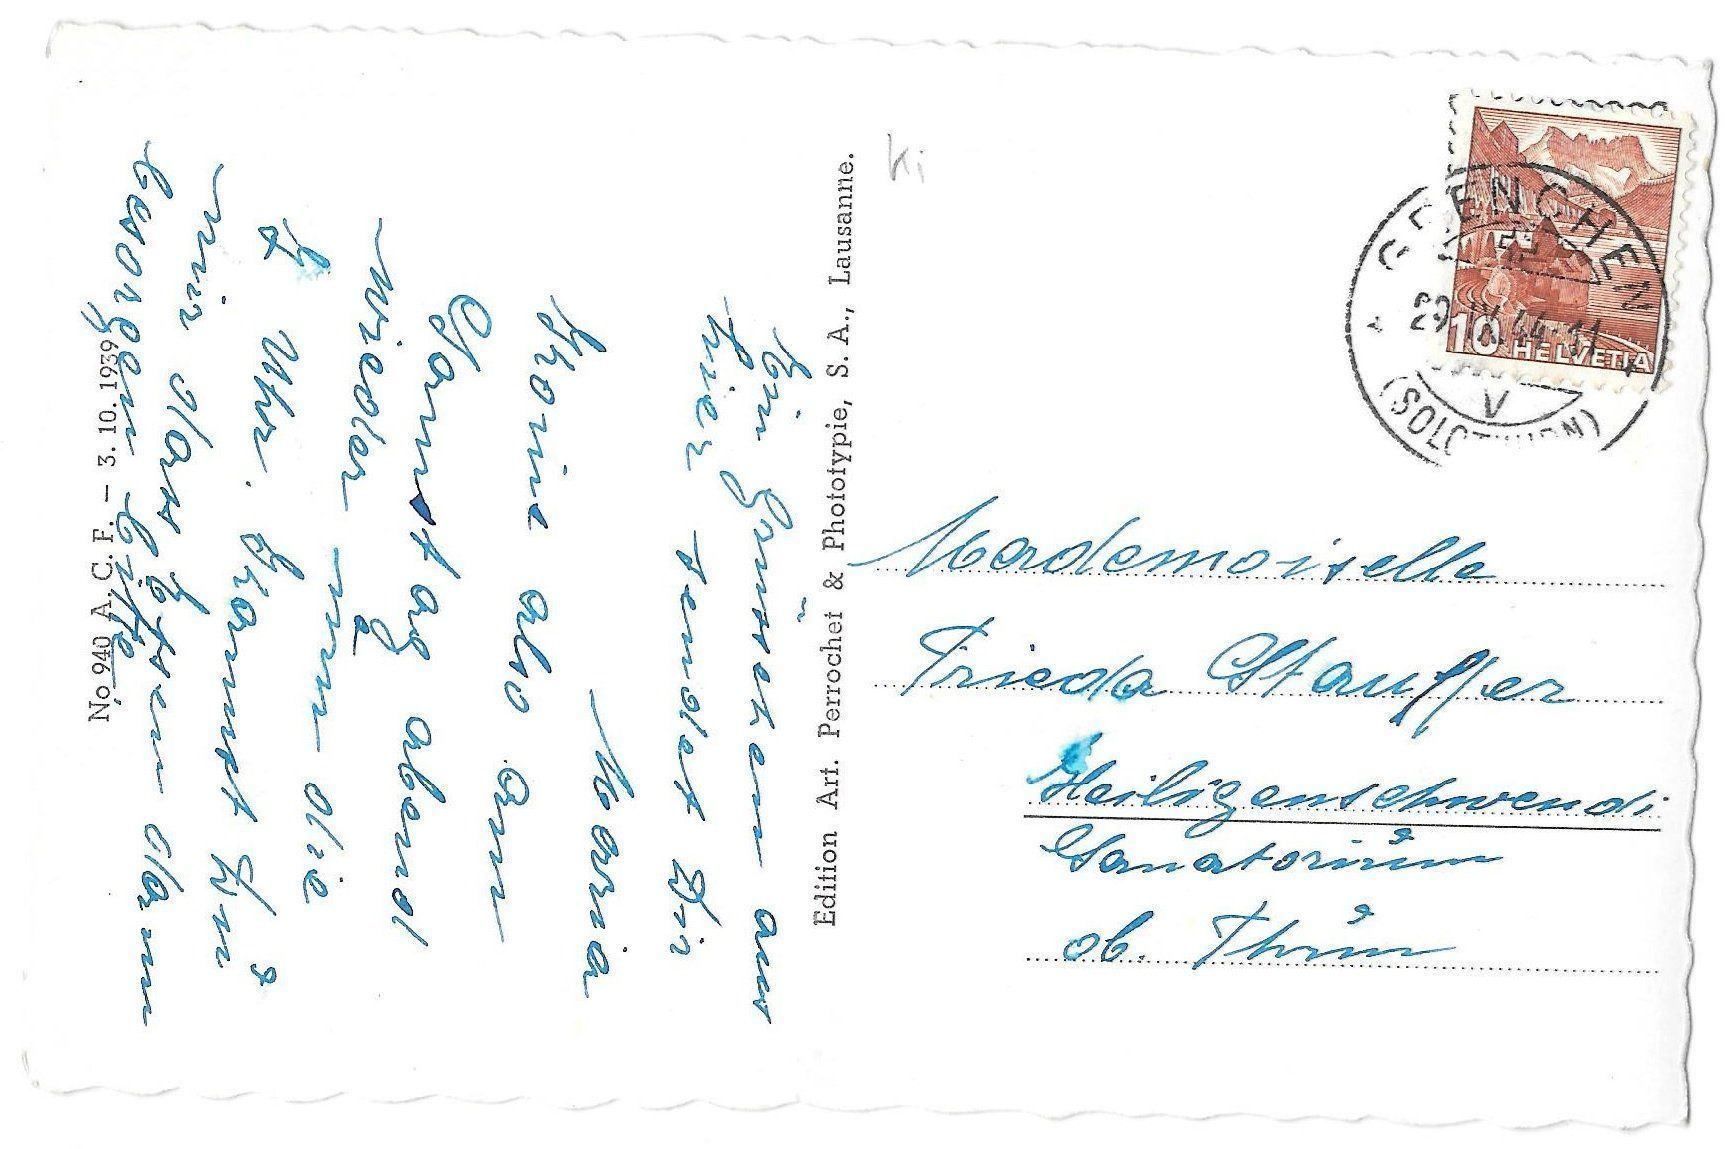 Ein Grüsschen aus
hier sendet Dir
Maria
also am
Samstag abend
wieder um die
Uhr. Kannst Du
mir das Essen dann
besorgen bitte
No 940 A. C. F. – 3. 10. 1939
Edition Art. Perrochet & Phototypie, S. A., Lausanne.
Ki
GRENCHEN
29. 44-11
V
(SOLOTHURN)
10 HELVETIA
Mademoiselle
Frieda Stauffer
Heiligenschwendi
Sanatorium
ob. Thun